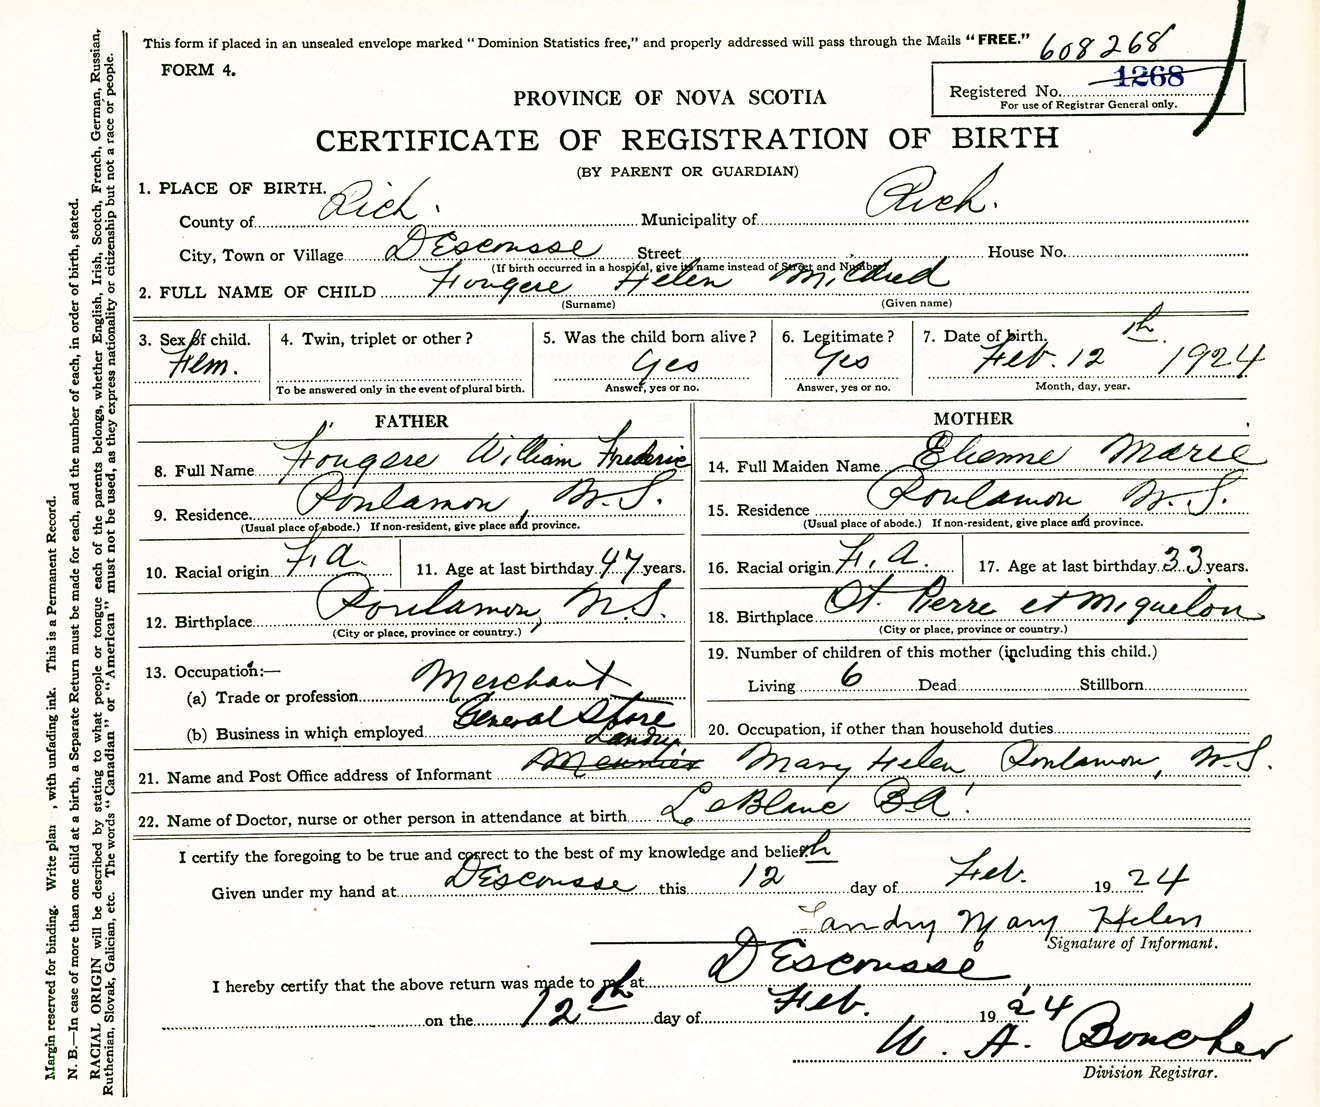 This form if placed in an unsealed envelope marked "Dominion Statistics free," and properly addressed will pass through the Mails "FREE."
608268
FORM 4.
Registered No. 1268
For use of Registrar General only.
PROVINCE OF NOVA SCOTIA
CERTIFICATE OF REGISTRATION OF BIRTH
(BY PARENT OR GUARDIAN)
1. PLACE OF BIRTH.
County of Rich. Municipality of Rich.
City, Town or Village DEscousse Street House No.
(If birth occurred in a hospital, give its name instead of Street and Number)
2. FULL NAME OF CHILD Fougere Helen Mildred
(Surname) (Given name)
3. Sex of child. 4. Twin, triplet or other? 5. Was the child born alive? 6. Legitimate? 7. Date of birth.
Fem. Yes Yes Feb. 12th 1924
To be answered only in the event of plural birth. Answer, yes or no. Answer, yes or no. Month, day, year.
FATHER MOTHER
8. Full Name Fougere William Frederic 14. Full Maiden Name Etienne Marie
9. Residence. Poulamon, N.S. 15. Residence Poulamon N.S.
(Usual place of abode.) If non-resident, give place and province. (Usual place of abode.) If non-resident, give place and province.
10. Racial origin F.A. 11. Age at last birthday 47 years. 16. Racial origin F.A. 17. Age at last birthday 33 years.
12. Birthplace Poulamon, N.S. 18. Birthplace St. Pierre et Miquelon
(City or place, province or country.) (City or place, province or country.)
13. Occupation:— 19. Number of children of this mother (including this child.)
(a) Trade or profession Merchant Living 6 Dead Stillborn
(b) Business in which employed General Store 20. Occupation, if other than household duties
Landry
21. Name and Post Office address of Informant Mary Helen Poulamon, N.S.
22. Name of Doctor, nurse or other person in attendance at birth LeBlanc BA!
I certify the foregoing to be true and correct to the best of my knowledge and belief.
Given under my hand at DEscousse this 12th day of Feb. 1924
Landry Mary Helen
Signature of Informant.
I hereby certify that the above return was made to me at DEscousse
on the 12th day of Feb. 1924
W. A. Boucher
Division Registrar.
Margin reserved for binding. Write plain, with unfading ink. This is a Permanent Record.
N. B.—In case of more than one child at a birth, a Separate Return must be made for each, and the number of each, in order of birth, stated.
RACIAL ORIGIN will be described by stating to what people or tongue each of the parents belongs, whether English, Irish, Scotch, French, German, Russian,
Ruthenian, Slovak, Galician, etc. The words "Canadian" or "American" must not be used, as they express nationality or citizenship but not a race or people.